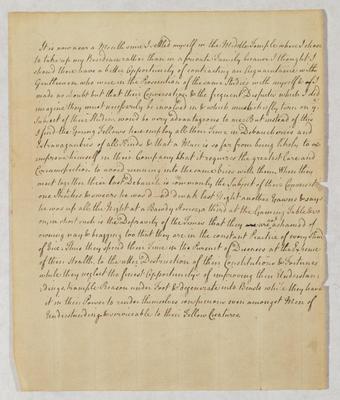 It is now near a Month since I settled myself in the Middle Temple where I chose
to take up my Residence rather than in a private Family because I thought I
should there have a better Opportunity of contracting an Acquaintance with
Gentlemen who were in the Prosecution of the same Studies with myself & I
made no doubt but that their Conversation & the frequent Disputes which I did
imagine they must necessarily be involved in & which must chiefly turn on ye
Subject of their Studies would be very advantageous to me. But instead of this
I find the Young Fellows here employ all their Time in Debaucheries and
Extravagancies of all Kinds & that a Man is so far from being likely to
improve himself in their Company that it requires the greatest Care and
Circumspection to avoid running into the same Vices with them. When they
meet together their last Debauch is commonly the Subject of their Conversation
one Stretches & swears he was Drunk last Night another Yawns & says
he was up all the Night at a Bawdy House a third at the Gaming Table & so
on, in short such is the Depravity of the Times that they are ashamed of
owning nay & bragging too that they are in the constant Practice of every Kind
of Vice. Thus they spend their Time in the Pursuit of Pleasures at the Expence
of their Health, to the utter Destruction of their Constitutions & Fortunes
while they neglect the finest Opportunitys of improving their Understan
dings, trample Reason under Foot & degenerate into Beasts while they have
it in their Power to render themselves conspicuous even amongst Men of
Understanding & serviceable to their Fellow Creatures.